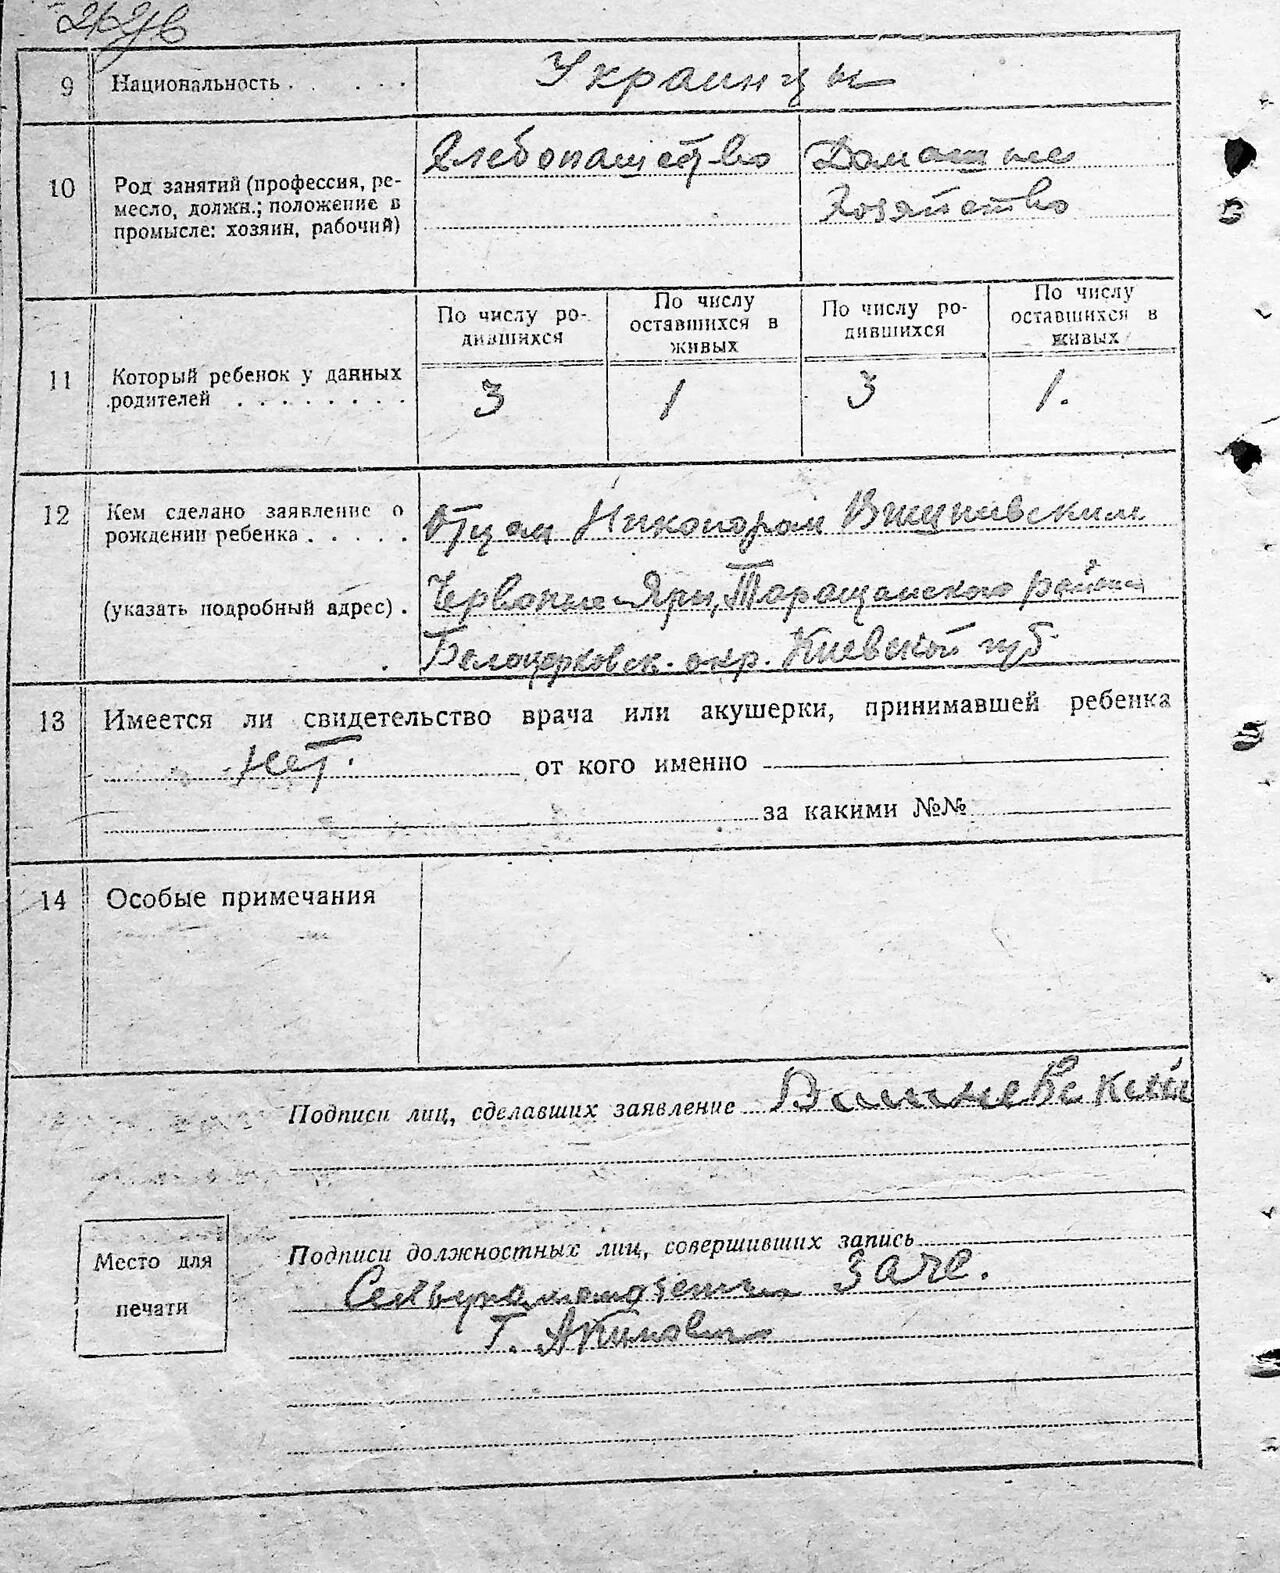 9 Национальность . . . . . Украинцы
10 Род занятий (профессия, ре-
месло, должн.; положение в
промысле: хозяин, рабочий)
Хлебопашество
Домашнее
Хозяйство
11 Который ребенок у данных
родителей . . . . . . . .
По числу ро-
дившихся
По числу
оставшихся в
живых
По числу ро-
дившихся
По числу
оставшихся в
живых
3 1 3 1.
12 Кем сделано заявление о
рождении ребенка . . . . .
(указать подробный адрес) .
Отцом Никонором
Яры, Таращанского района
Белоцерковск. окр. Киевской губ.
13 Имеется ли свидетельство врача или акушерки, принимавшей ребенка
нет. от кого именно
за какими №№
14 Особые примечания
Подписи лиц, сделавших заявление
Место для
печати
Подписи должностных лиц, совершивших запись
ЗАГС.
Т.